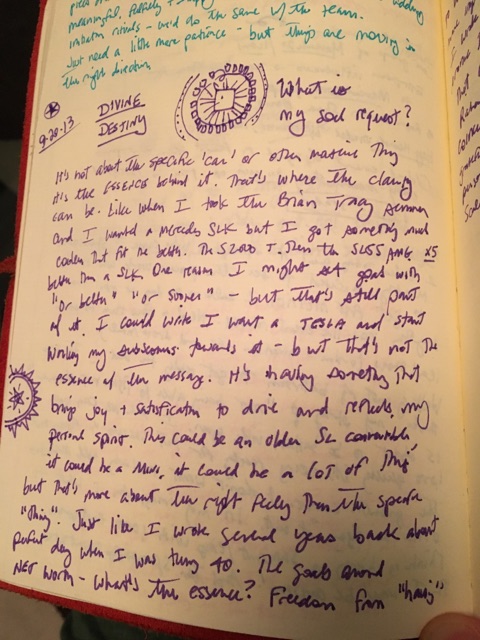 meaningful,
rituals - we'd do the same w/ the team.
Just need a little more patience - but things are moving in
the right direction
9-20-13
DIVINE
DESTINY
What is
my soul request?
It's not about the specific 'car' or other massive thing
it's the ESSENCE behind it. That's where the clarity
can be. Like when I took the Brian Tracy seminar
and I wanted a Mercedes SLK but I got something much
cooler that fit me better. The Then the SL55 AMG X5
better than a SLK. One reason I might set goals with
"or better" "or sooner" - but that's still part
of it. I could write I want a TESLA and start
working my subconscious towards it - but that's not the
essence of the message. It's having something that
brings joy + satisfaction to drive and reflects my
personal spirit. This could be an older SL convertible,
it could be a it could be a lot of things
but that's more about the right feeling than the specific
"thing". Just like I wrote several years back about
perfect day when I was turning 40. The goals around
NET worth - what's the essence? Freedom from "having"